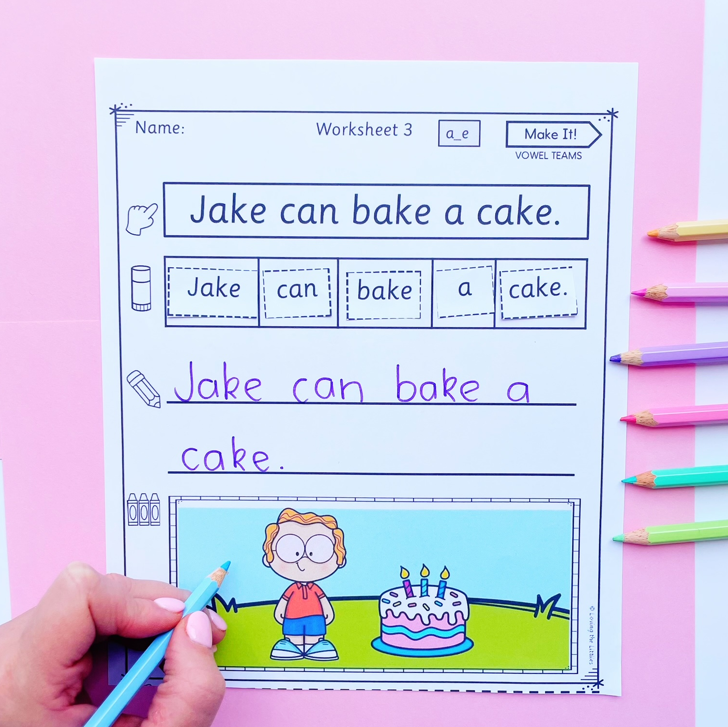 Name: Worksheet 3 a_e Make It!
VOWEL TEAMS
Jake can bake a cake.
Jake can bake a cake.
Jake can bake a
cake.
© Loving My Littles